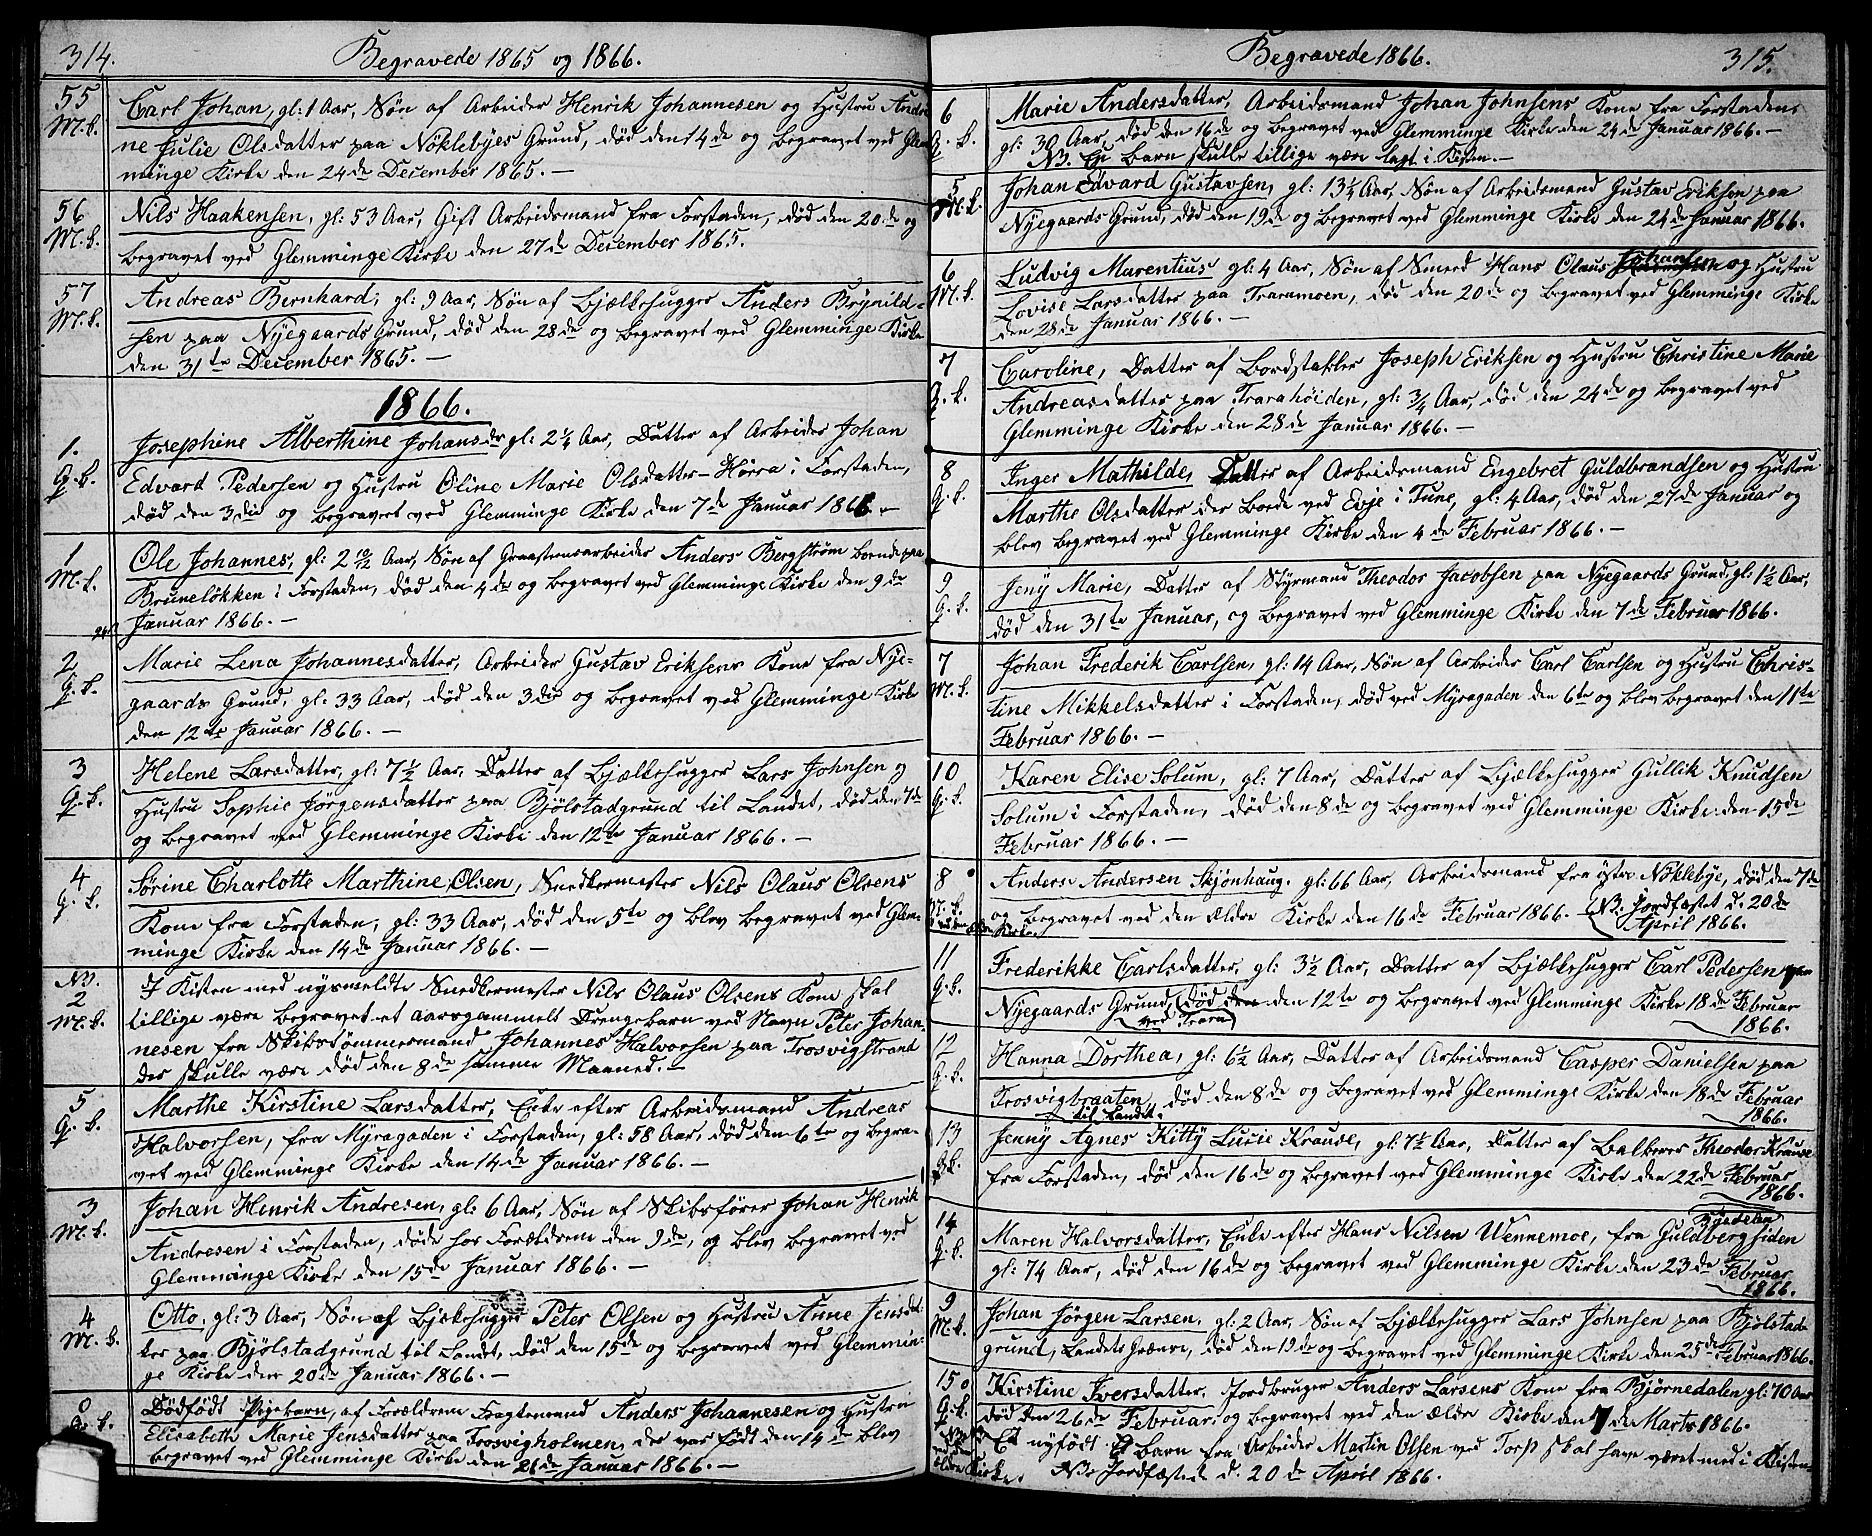 314.
Begravede 1865 og 1866.
55
M.k.
Carl Johan, gl: 1 Aar, Søn af Arbeider Henrik Johannesen og Hustru Andri-
ne Julie Olsdatter paa Nöklebyes Grund, död den 14de og begravet ved Glem-
minge Kirke den 24de December 1865. —
56
M.k.
Nils Haakensen, gl: 53 Aar, Gift Arbeidsmand fra Forstaden, död den 20de og
begravet ved Glemminge Kirke den 27de December 1865.
57
M.k.
Andreas Bernhard, gl: 9 Aar, Søn af Bjælkehugger Anders Brynild-
sen paa Nyegaards Grund, död den 28de og begravet ved Glemminge Kirke
den 31te December 1865. —
1866.
1.
Q.k.
Josephine Alberthine Johansdr gl: 2 1/4 Aar, Datter af Arbeider Johan
Edvard Pedersen og Hustru Oline Marie Olsdatter - Hörra i Forstaden,
död den 3die og begravet ved Glemminge Kirke den 7de Januar 1866. —
1
M.k.
Ole Johannes, gl: 2 10/12 Aar, Søn af Graastensarbeider Anders Bergström boende paa
Bruneløkken i Forstaden, död den 4de og begravet ved Glemminge Kirke den 9de
Januar 1866. —
2
Q.k.
Marie Lena Johannesdatter, Arbeider Gustav Eriksens Kone fra Nye-
gaards Grund, gl: 33 Aar, död den 3die og begravet ved Glemminge Kirke
den 12te Januar 1866. —
3
Q.k.
Helene Larsdatter, gl: 7 1/2 Aar, Datter af Bjælkehugger Lars Johnsen og
Hustru Sophie Jörgensdatter paa Bjölstadgrund til Landet, död den 7de
og begravet ved Glemminge Kirke den 12te Januar 1866. —
4
Q.k.
Sørine Charlotte Marthine Olsen, Snedkermester Nils Olaus Olsens
Kone fra Forstaden, gl: 33 Aar, död den 5te og blev begravet ved Glem-
minge Kirke den 14de Januar 1866. —
NB.
2
M.k.
I Kisten med nysmeldte Snedkermester Nils Olaus Olsens Kone skal
tillige være begravet et aarsgammelt Drengebarn ved Navn Peter Johan-
nesen fra Skibstømmermand Johannes Halvorsen paa Trosvigstrand
der skulle være död den 8de samme Maaned. —
5
Q.k.
Marthe Kirstine Larsdatter, Enke efter Arbeidsmand Andreas
Halvorsen, fra Myragaden i Forstaden, gl: 58 Aar, död den 6te og begra-
vet ved Glemminge Kirke den 14de Januar 1866. —
3
M.k.
Johan Henrik Andresen, gl: 6 Aar, Søn af Skibsfører Johan Henrik
Andresen i Forstaden, döde hos Forældrene den 9de, og blev begravet ved
Glemminge Kirke den 15de Januar 1866. —
4
M.k.
Otto, gl: 3 Aar, Søn af Bjelkehugger Peter Olsen og Hustru Anne Jensdat-
ter paa Bjölstadgrund til Landet, död den 15de og begravet ved Glemmin-
ge Kirke den 20de Januar 1866. —
0
Q.k.
Dödfödt Pigebarn, af Forældrene Fragtemand Anders Johannesen og Hustru
Elisabeth Marie Jensdatter paa Trosvigholmen, der var födt den 14de blev
begravet ved Glemminge Kirke den 21de Januar 1866. —
Begravede 1866.
315.
6
Q.k.
Marie Andersdatter, Arbeidsmand Johan Johnsens Kone fra Forstaden,
gl: 30 Aar, död den 16de og begravet ved Glemminge Kirke den 24de Januar 1866. —
NB. Et Barn skulle tillige være lagt i Kisten. —
5
M.k.
Johan Edvard Gustavsen, gl: 13 1/4 Aar, Søn af Arbeidsmand Gustav Eriksen paa
Nyegaards Grund, död den 19de og begravet ved Glemminge Kirke den 24de Januar 1866.
6
M.k.
Ludvig Marentius gl: 4 Aar, Søn af Smed Hans Olaus Johansen og Hustru
Lovise Larsdatter paa Traramoen, död den 20de og begravet ved Glemminge Kirke
den 28de Januar 1866. —
7
Q.k.
Caroline, Datter af Bordstabler Joseph Eriksen og Hustru Christine Marie
Andreasdatter paa Trarahöiden, gl: 3/4 Aar, död den 24de og begravet ved
Glemminge Kirke den 28de Januar 1866. —
8
Q.k.
Inger Mathilde, Datter af Arbeidsmand Engebret Guldbrandsen og Hustru
Marthe Olsdatter der boede ved Evje i Tune, gl: 4 Aar, död den 27de Januar og
blev begravet ved Glemminge Kirke den 4de Februar 1866. —
9
Q.k.
Jeny Marie, Datter af Styrmand Theodor Jacobsen paa Nyegaards Grund, gl: 1 1/2 Aar,
död den 31te Januar, og begravet ved Glemminge Kirke den 7de Februar 1866.
7
M.k.
Johan Frederik Carlsen, gl: 14 Aar, Søn af Arbeider Carl Carlsen og Hustru Chris-
tine Mikkelsdatter i Forstaden, död ved Myragaden den 6te og blev begravet den 11te
Februar 1866. —
10
Q.k.
Karen Elise Solum, gl: 7 Aar, Datter af Bjælkehugger Gullik Knudsen
Solum i Forstaden, död den 8de og begravet ved Glemminge Kirke den 15de
Februar 1866. —
8
M.k.
ved den ældre Kirke.
Anders Andersen Skjönhaug, gl: 66 Aar, Arbeidsmand fra östre Nöklebye, död den 7de
og begravet ved den ældre Kirke den 16de Februar 1866. NB. Jordfæstet d. 20de
April 1866.
11
Q.k.
Frederikke Carlsdatter, gl: 3 1/2 Aar, Datter af Bjælkehugger Carl Pedersen paa
Nyegaards Grund, död den 12te og begravet ved Glemminge Kirke 18de Februar
ved Trara
1866.
12
Q.k.
Hanna Dorthea, gl: 6 1/2 Aar, Datter af Arbeidsmand Casper Danielsen paa
Trosvigbraaten, död den 8de og begravet ved Glemminge Kirke den 18de Februar
til Landet.
1866.
13
Q.k.
Jenny Agnes Kitty Lucie Krause, gl: 7 1/2 Aar, Datter af Balberer Theodor Krause
fra Forstaden, död den 16de og begravet ved Glemminge Kirke den 22de Februar
1866.
14
Q.k.
Maren Halvorsdatter, Enke efter Hans Nilsen Wennemoe, fra Guldbergsiden
gl: 74 Aar, död den 16de og begravet ved Glemminge Kirke den 23de Februar
1866.
9
M.k.
Johan Jörgen Larsen, gl: 2 Aar, Søn af Bjælkehugger Lars Johnsen paa Bjölstad-
grund, Landets Grænse, död den 19de og begravet ved Glemminge Kirke den 25de Februar 1866.
15
Q.k.
NB. ved den ældre Kirke.
Kirstine Iversdatter, Jordbruger Anders Larsens Kone fra Bjørnedalen gl: 70 Aar
död den 26de Februar, og begravet ved den ældre Kirke den 7de Marts 1866.
Et nyfödt Barn fra Arbeider Martin Olsen ved Torp skal have været med i Kisten.
NB. Jordfæstede d. 20de April 1866.